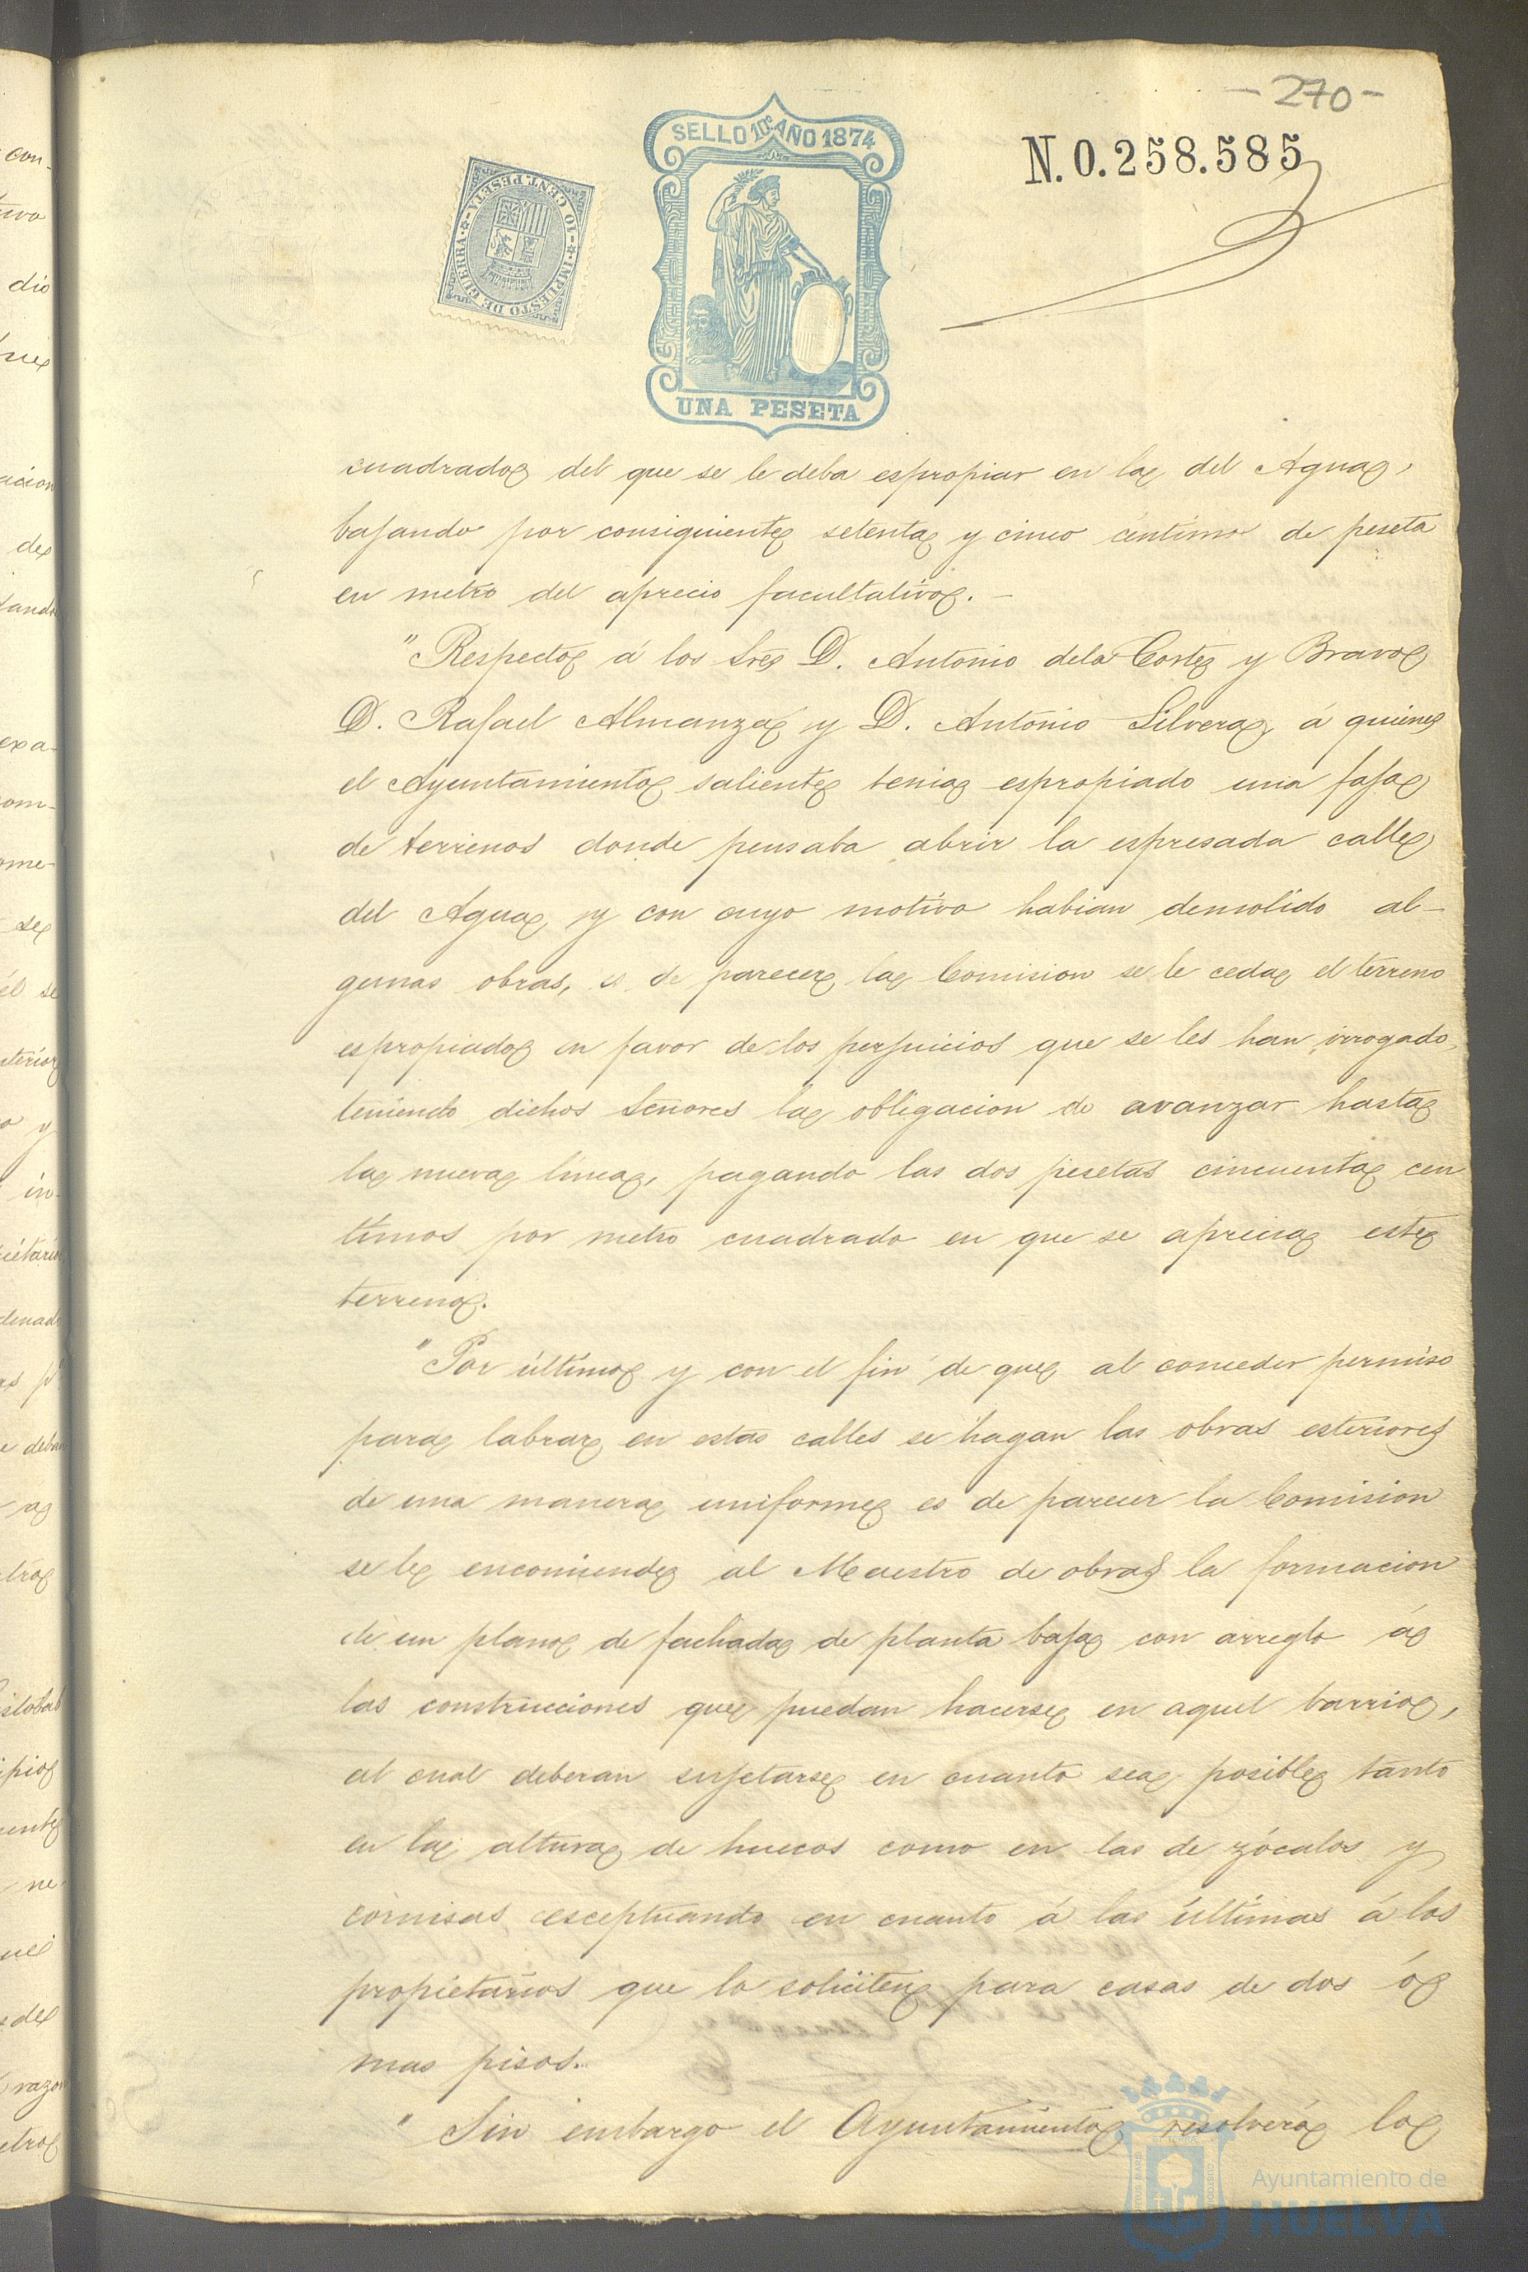 - 270 -
SELLO 10º AÑO 1874
N. 0.258.585
IMPUESTO DE GUERRA
10 CENT. PESETA
UNA PESETA
cuadrado del que se le deba espropiar en la del Agua,
bajando por consiguiente setenta y cinco céntimos de peseta
en metro del aprecio facultativo. –
"Respecto á los Sres D. Antonio dela Corte y Bravo
D. Rafael Almanza y D. Antonio Silvera, á quienes
el Ayuntamiento saliente tenia espropiado una faja
de terrenos donde pensaba abrir la espresada calle
del Agua, y con cuyo motivo habian demolido al-
gunas obras, es de parecer la Comision se le ceda el terreno
espropiado en favor de los perjuicios que se les han irrogado,
teniendo dichos Señores la obligacion de avanzar hasta
la nueva línea, pagando las dos pesetas cincuenta cen
timos por metro cuadrado en que se aprecia este
terreno.
"Por último y con el fin de que al conceder permiso
para labrar en estas calles se hagan las obras esteriores
de una manera uniforme es de parecer la Comision
se le encomiende al Maestro de obras la formacion
de un plano de fachada de planta baja con arreglo á
las construcciones que puedan hacerse en aquel barrio,
al cual deberan sujetarse en cuanto sea posible tanto
en la altura de huecos como en las de zócalos y
cornisas esceptuando en cuanto á las últimas á los
propietarios que lo soliciten para casas de dos ó
mas pisos.
" Sin embargo el Ayuntamiento resolverá lo
Ayuntamiento de
HUELVA